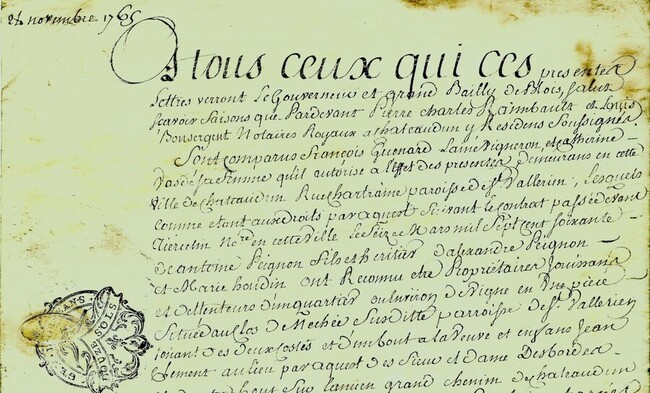 24 novembre 1765
A tous ceux qui ces presentes
Lettres verront Le Gouverneur et grand Bailly de Blois, salut
scavoir faisons que Pardevant Pierre Charles Raimbault et Louis
Bonsergent Notaires Royaux a chateaudun y Residens Soussignés,
Sont comparus francois Guenard Laine vigneron, et catherine
sa femme qu'il autorise a l'effet des presentes demeurans en cette
ville de chateaudun Rue chartraine paroisse de st. Vallerien, Lesquels
comme etant aux droits par aquest suivant le contrat passé devant
Nere. en cette ville le seize Mars mil sept cent soixante
de antoine Peignon fils et heritier d'alexandre Peignon
et Marie houdin ont Reconnu etre Proprietaires jouissans
et detenteurs d'un quartier ou Environ de vigne en une piece
Située au Clos de Mechée Susditte parroisse de st. Vallerien
joignant des deux costés et d'un bout a la veuve et enfans jean
Clement au lieu par aquest des Sieur et Dame Desbordes
bout sur l'ancien grand chemin de chateaudun